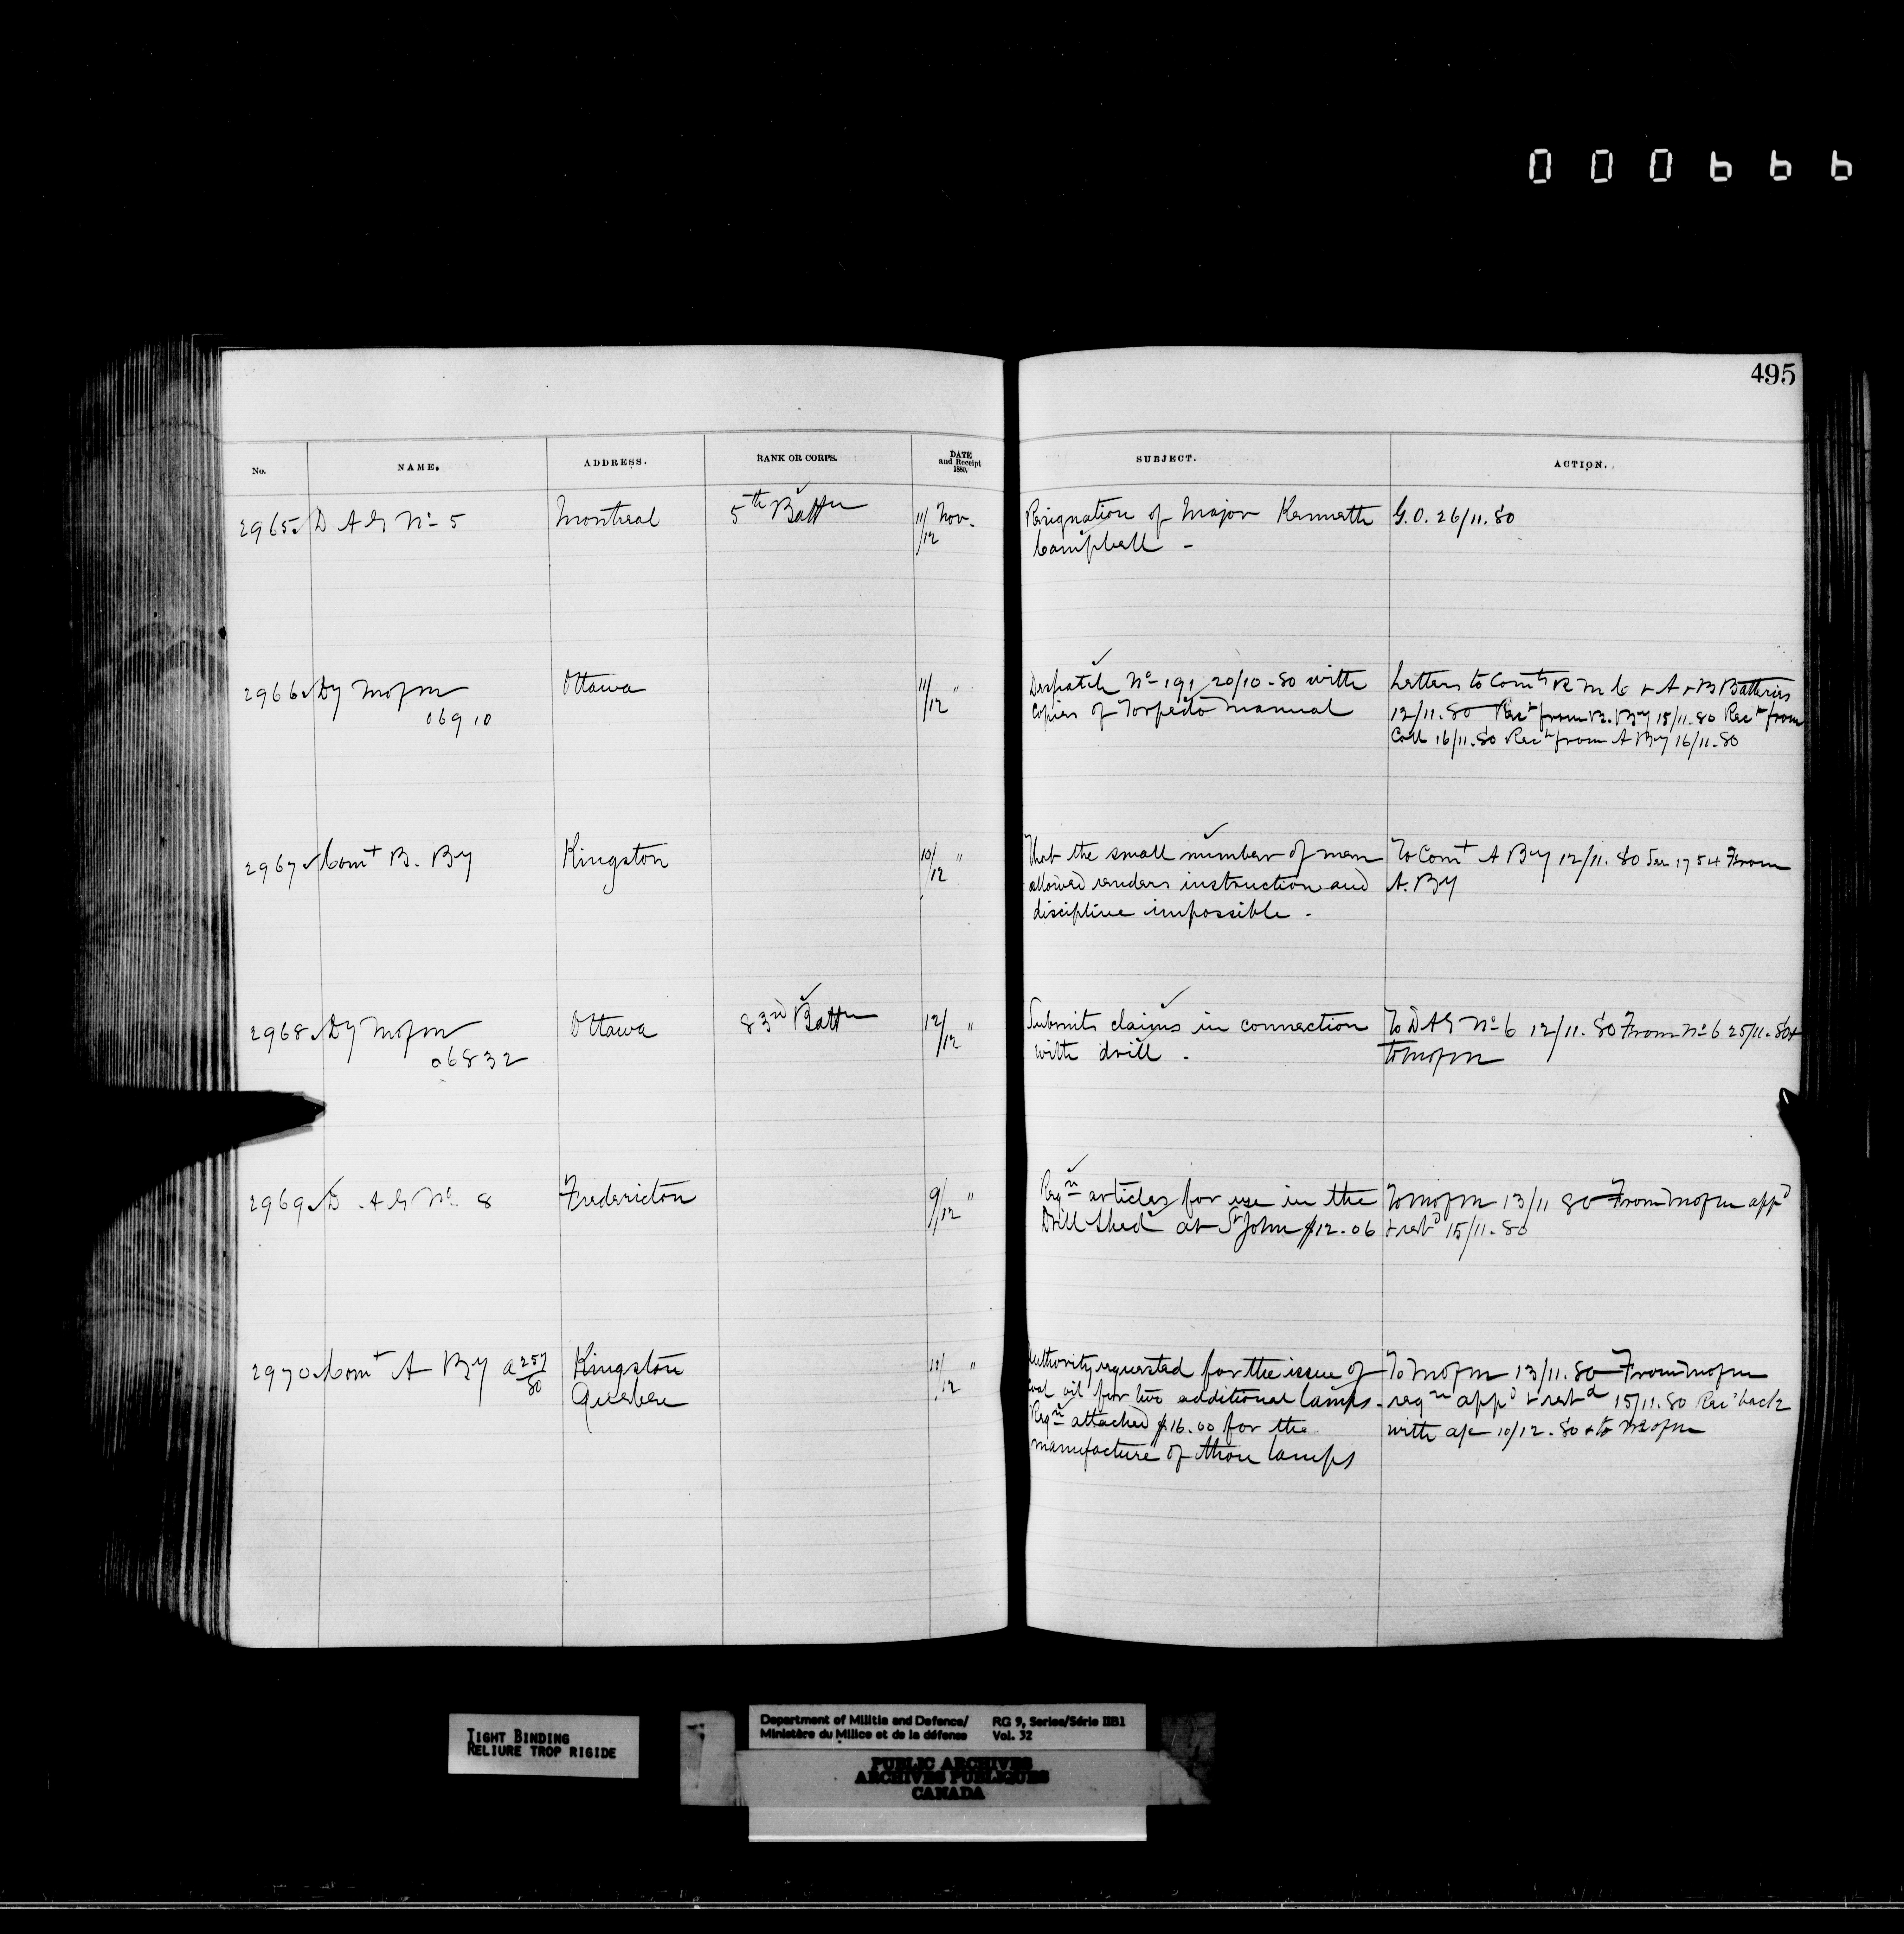 000666
495
No. NAME. ADDRESS. RANK OR CORPS. DATE and Receipt 1880. SUBJECT. ACTION.
2965 D A G No 5 Montreal 5th Battn 11/12 Nov. Resignation of Major Kenneth G.O. 26/11.80
Campbell -
2966 Dy Mofm Ottawa 11/12 " Despatch No 191 20/10-80 with Letters to Comts R M C & A & B Batteries
06910 Copies of Torpedo Manual 12/11.80 Rect from B. By 15/11.80 Rect from
Coll 16/11.80 Rect from A By 16/11.80
2967 Comt B. By Kingston 10/12 " That the small number of men To Comt A By 12/11.80 See 1754 From
allowed renders instruction and A. By
discipline impossible.
2968 Dy Mofm Ottawa 83rd Battn 12/12 " Submits claims in connection To D A G No 6 12/11.80 From No 6 25/11.80 &
06832 with drill. to Mofm
2969 D. A G No. 8 Fredericton 9/12 " Reqn articles for use in the To Mofm 13/11 80 From Mofm appd
Drill Shed at St John $12.06 & retd 15/11.80
2970 Comt A By a 257/80 Kingston 11/12 " Authority requested for the issue of To Mofm 13/11.80 From Mofm
Quebec coal oil for two additional lamps. reqn appd & retd 15/11.80 Recd back
Reqn attached $16.00 for the with a/c 10/12.80 & to Mofm
manufacture of those lamps
TIGHT BINDING
RELIURE TROP RIGIDE
Department of Militia and Defence/ RG 9, Series/Série IIB1
Ministère du Milice et de la défense Vol. 32
PUBLIC ARCHIVES
ARCHIVES PUBLIQUES
CANADA